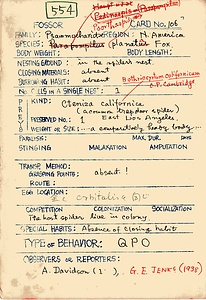 554
FOSSOR CARD No. 106
FAMILY: Psammocharidae REGION: N. America
SPECIES: planatus Fox.
BODY WEIGHT: BODY LENGTH:
NESTING GROUND: in the spider's nest.
CLOSING MATERIALS: absent
BURROWING HABIT: absent
Bothriocyrtum californicum
O.P. Cambridge
No CELLS IN A SINGLE NEST: 1
PREY
KIND: Cteniza californica
(a common trapdoor spider)
PRESERVED No.: 1 East Los Angeles.
WEIGHT OR SIZE: a comparatively heavy body
PARALISER: MAX. DUR.
STINGING MALAXATION AMPUTATION
TRANSP. METHOD:
GRASPING POINTS: absent!
ROUTE:
EGG LOCATION:
COMPETITION COLONIZATION SOCIALIZATION
The host spiders live in colony.
SPECIAL HABITS: Absence of closing habit
TYPE OF BEHAVIOR: QPO
OBSERVERS OR REPORTERS:
A. Davidson (1 ), G. E. JENKS (1938)